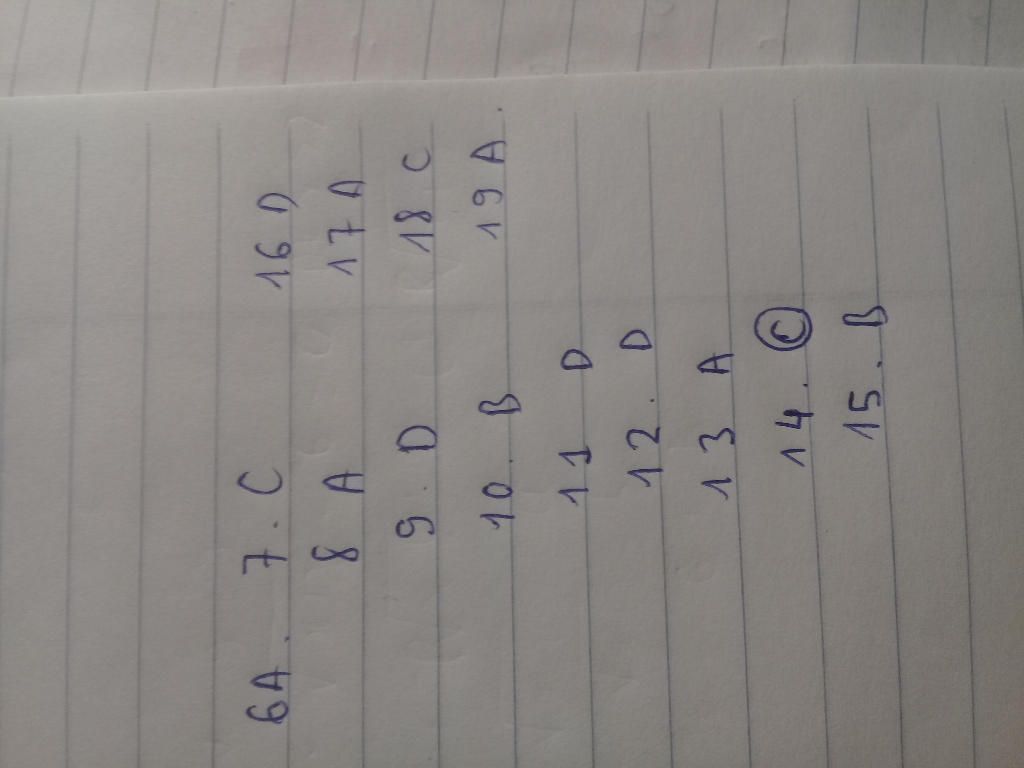 6A. 7. C 16 D
8 A 17 A
9. D 18 C
10. B 19 A.
11 D
12. D
13 A
14. C
15. B